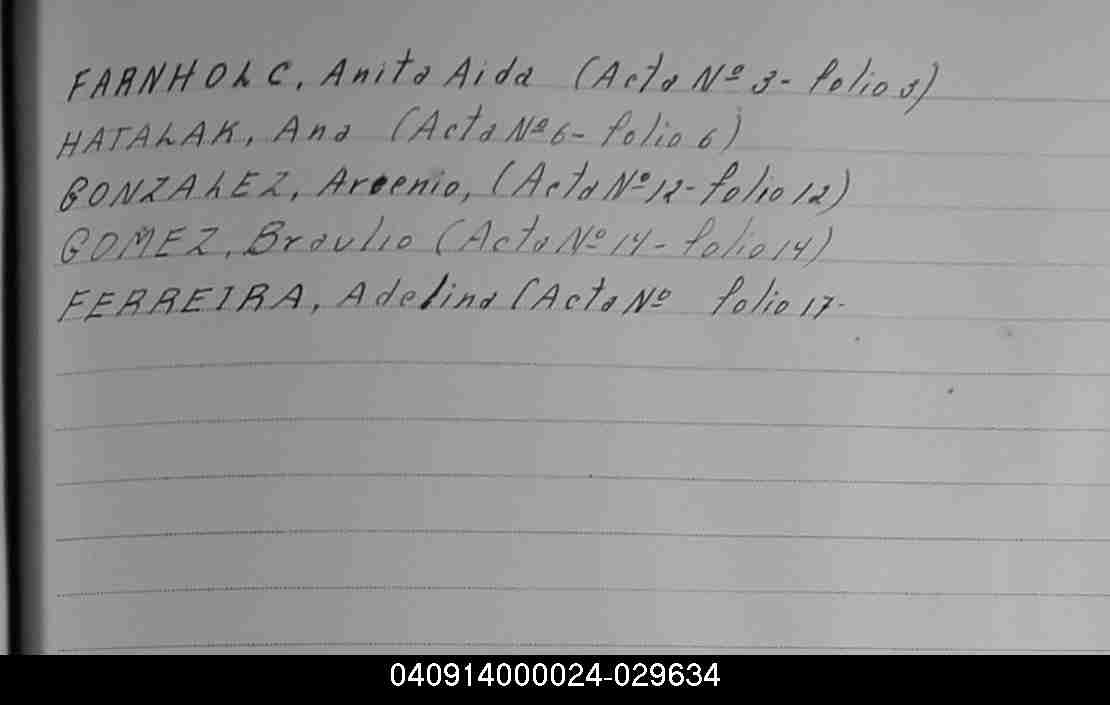 FARNHOLC, Anita Aida (Acta Nº 3- folio 3)
HATALAK, Ana (Acta Nº 6- folio 6)
GONZALEZ, Arcenio, (Acta Nº 12- folio 12)
GOMEZ, Braulio (Acta Nº 14- folio 14)
FERREIRA, Adelina (Acta Nº folio 17-
040914000024-029634